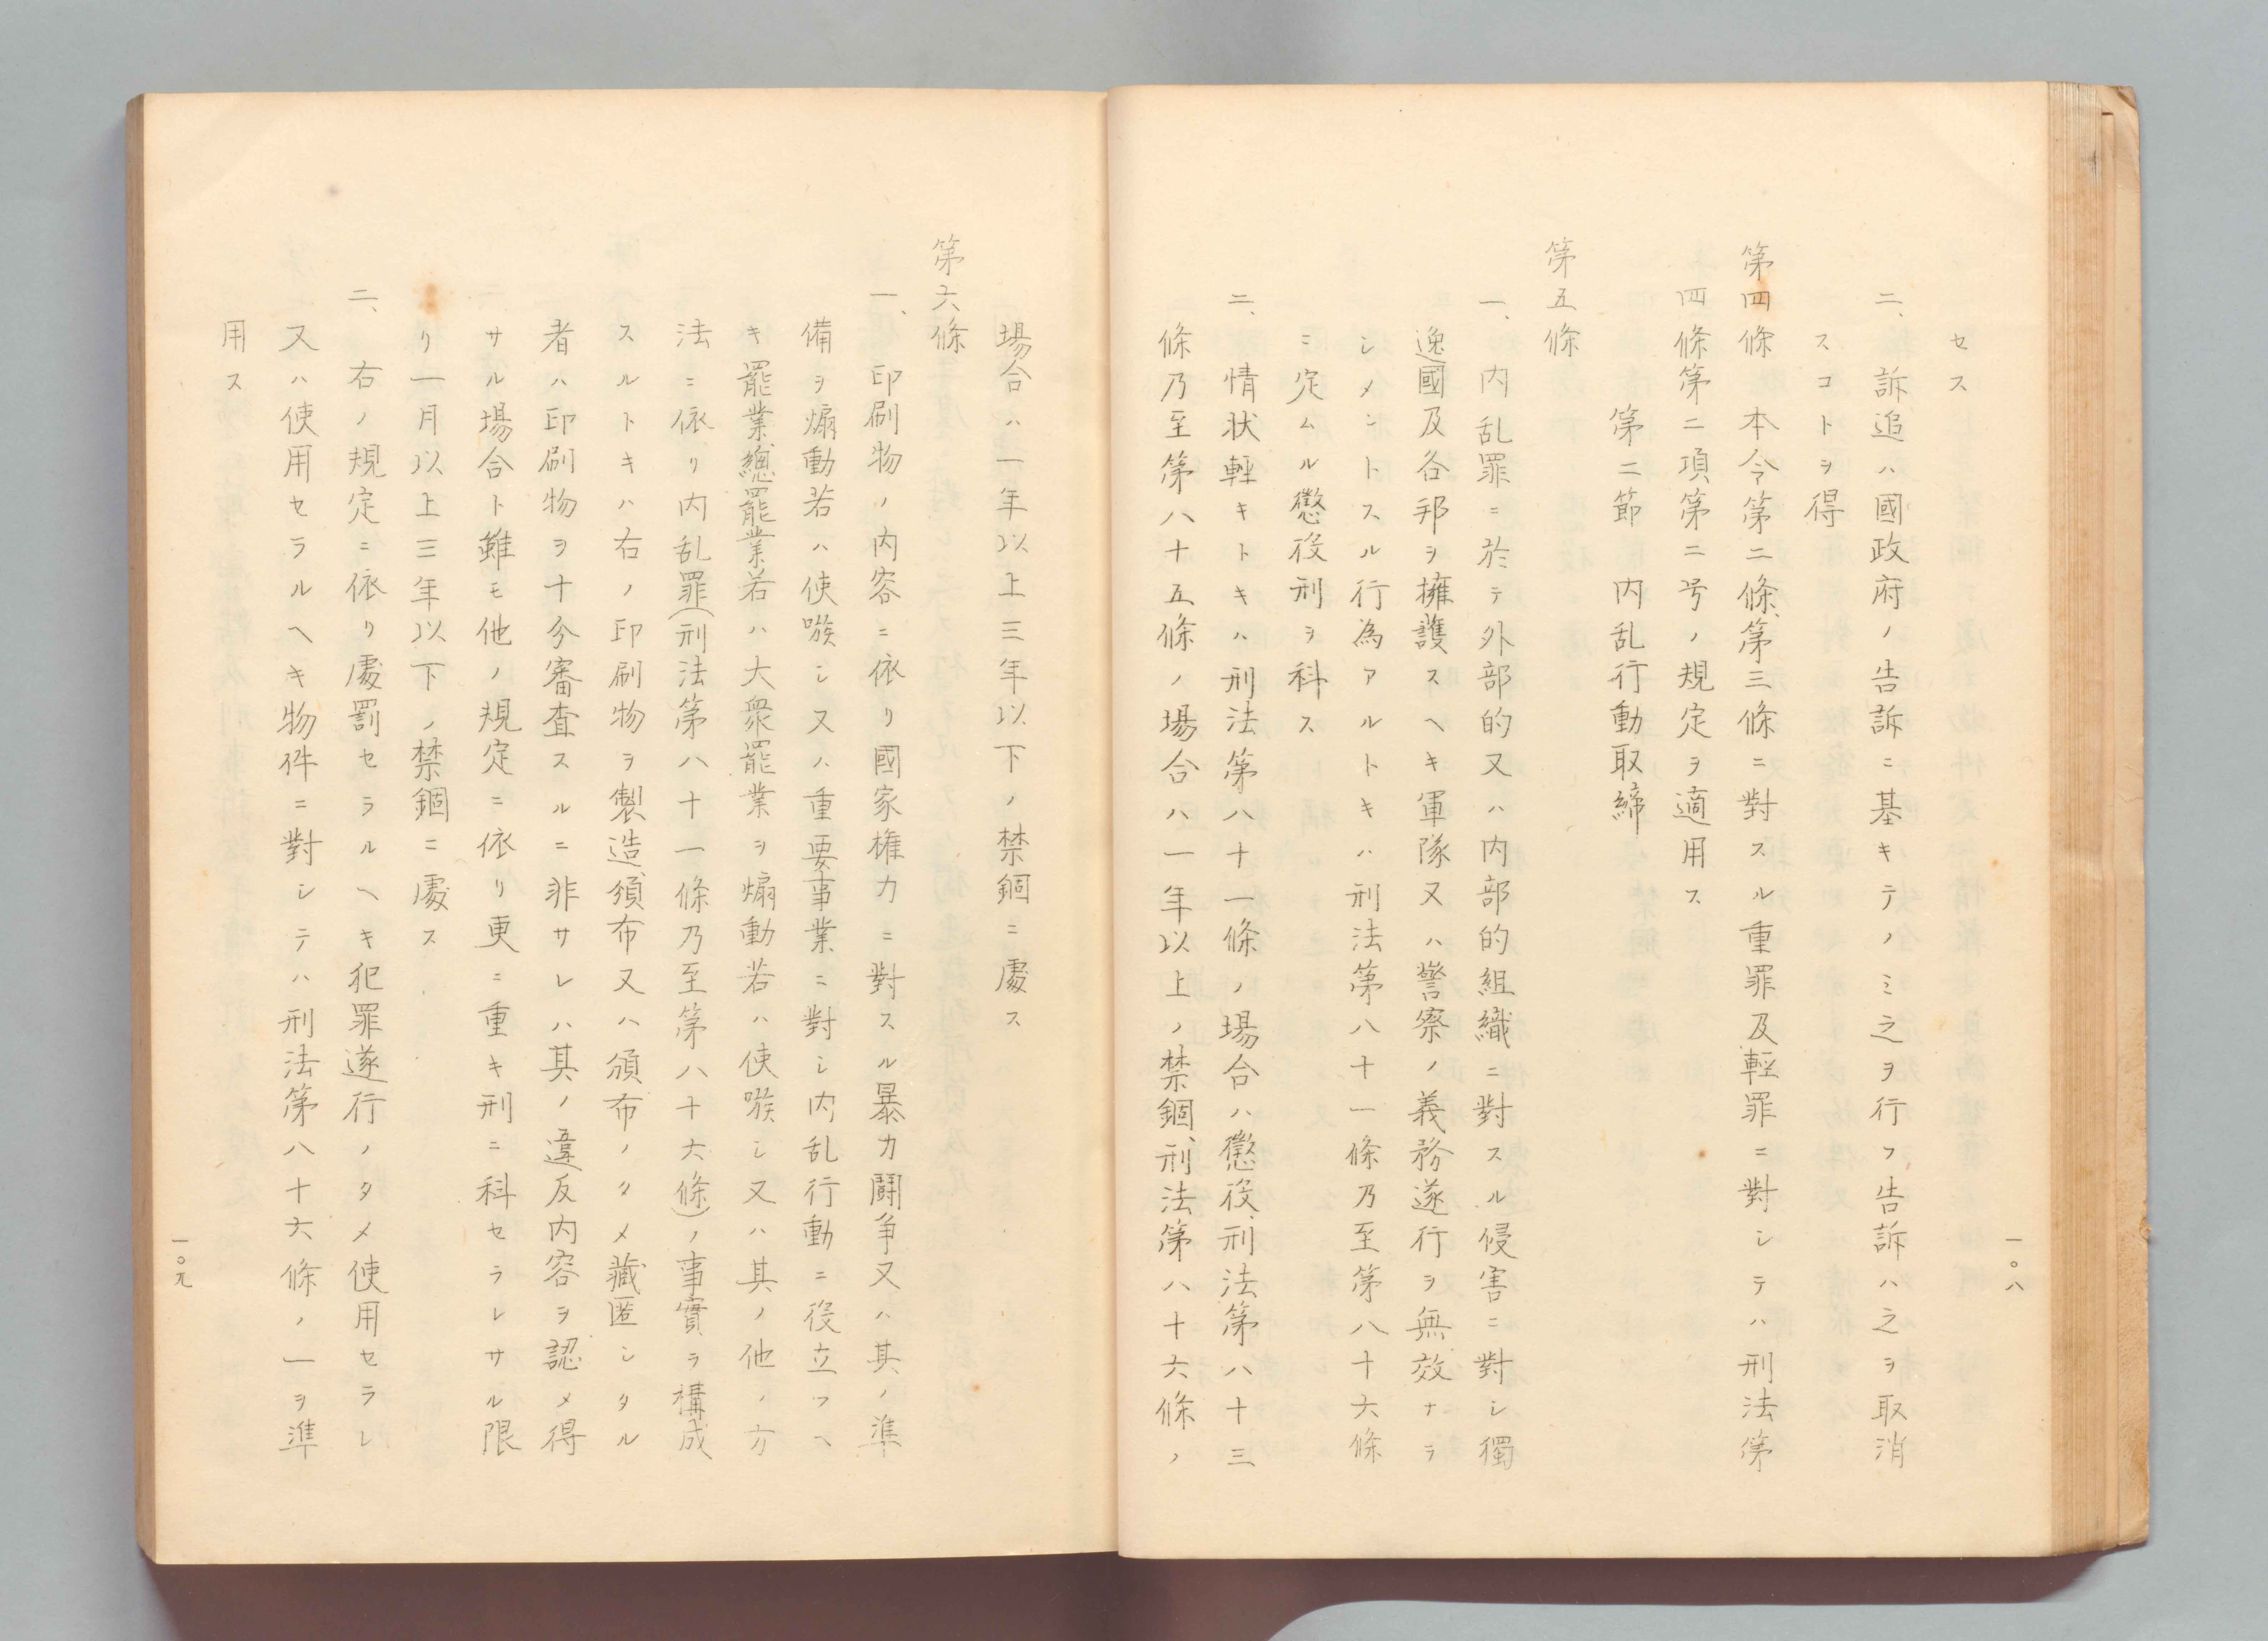 セス
二、訴追ハ國政府ノ告訴ニ基キテノミ之ヲ行フ告訴ハ之ヲ取消
スコトヲ得
第四條　本令第二條、第三條ニ對スル重罪及輕罪ニ對シテハ刑法第
四條第二項第二号ノ規定ヲ適用ス
第二節　内乱行動取締
第五條
一、内乱罪ニ於テ外部的又ハ内部的組織ニ對スル侵害ニ對シ獨
逸國及各邦ヲ擁護スヘキ軍隊又ハ警察ノ義務遂行ヲ無效ナラ
シメントスル行為アルトキハ刑法第八十一條乃至第八十六條
ニ定ムル懲役刑ヲ科ス
二、情状輕キトキハ刑法第八十一條ノ場合ハ懲役、刑法第八十三
條乃至第八十五條ノ場合ハ一年以上ノ禁錮、刑法第八十六條ノ
一〇八
場合ハ一年以上三年以下ノ禁錮ニ處ス
第六條
一、印刷物ノ内容ニ依リ國家権力ニ對スル暴力鬪争又ハ其ノ準
備ヲ煽動若ハ使嗾シ又ハ重要事業ニ對シ内乱行動ニ役立ツヘ
キ罷業總罷業若ハ大衆罷業ヲ煽動若ハ使嗾シ又ハ其ノ他ノ方
法ニ依リ内乱罪(刑法第八十一條乃至第八十六條)ノ事實ヲ構成
スルトキハ右ノ印刷物ヲ製造、頒布又ハ頒布ノタメ藏匿シタル
者ハ印刷物ヲ十分審査スルニ非サレハ其ノ違反内容ヲ認メ得
サル場合ト雖モ他ノ規定ニ依リ更ニ重キ刑ニ科セラレサル限
リ一月以上三年以下ノ禁錮ニ處ス
二、右ノ規定ニ依リ處罰セラルヘキ犯罪遂行ノタメ使用セラレ
又ハ使用セラルヘキ物件ニ對シテハ刑法第八十六條ノ一ヲ準
用ス
一〇九